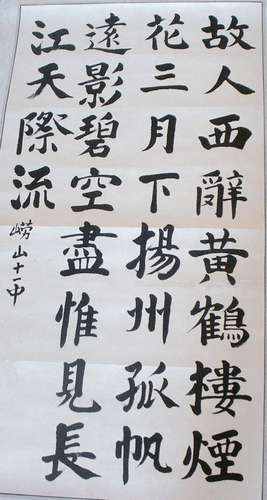 故人西辭黃鶴樓煙
花三月下揚州孤帆
遠影碧空盡惟見長
江天際流
嶗山十一中